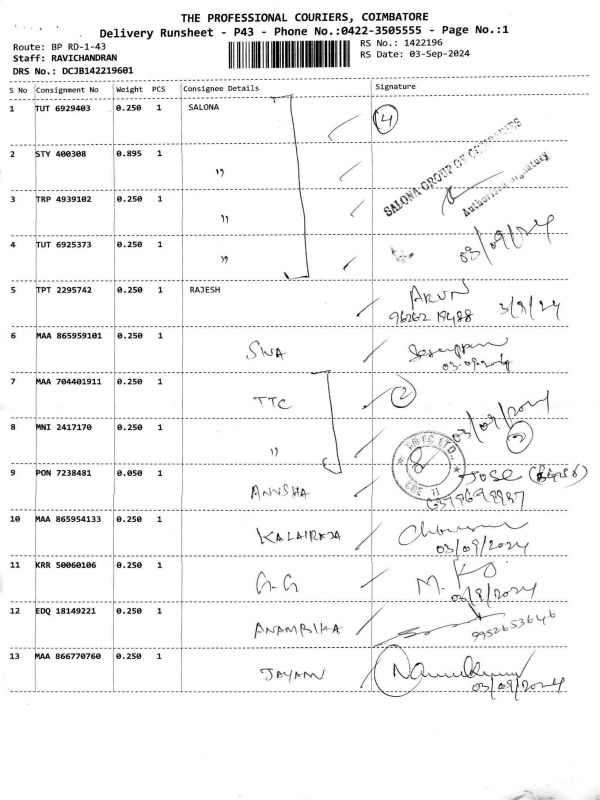 THE PROFESSIONAL COURIERS, COIMBATORE
Delivery Runsheet - P43 - Phone No.:0422-3505555 - Page No.:1
Route: BP RD-1-43
Staff: RAVICHANDRAN
DRS No.: DCJB142219601
RS No.: 1422196
RS Date: 03-Sep-2024
S No Consignment No Weight PCS Consignee Details Signature
1 TUT 6929403 0.250 1 SALONA 4
SALONA GROUP OF COMPANIES
Authorised Signatory
2 STY 400308 0.895 1 "
3 TRP 4939102 0.250 1 "
4 TUT 6925373 0.250 1 " 03/09/2024
5 TPT 2295742 0.250 1 RAJESH ARUN
96262 19488 3/9/24
6 MAA 865959101 0.250 1 SIVA
03.09.2024
7 MAA 704401911 0.250 1 TTC 2
03/09/2024
8 MNI 2417170 0.250 1 " 2
9 PON 7238481 0.050 1 ANUSHA JOSE
10 MAA 865954133 0.250 1 KALAIRAJA
03/09/2024
11 KRR 50060106 0.250 1 G.G M.
03/9/2024
12 EDQ 18149221 0.250 1 ANAMBIKA 9952653646
13 MAA 866770760 0.250 1 JAYAM
03/09/2024